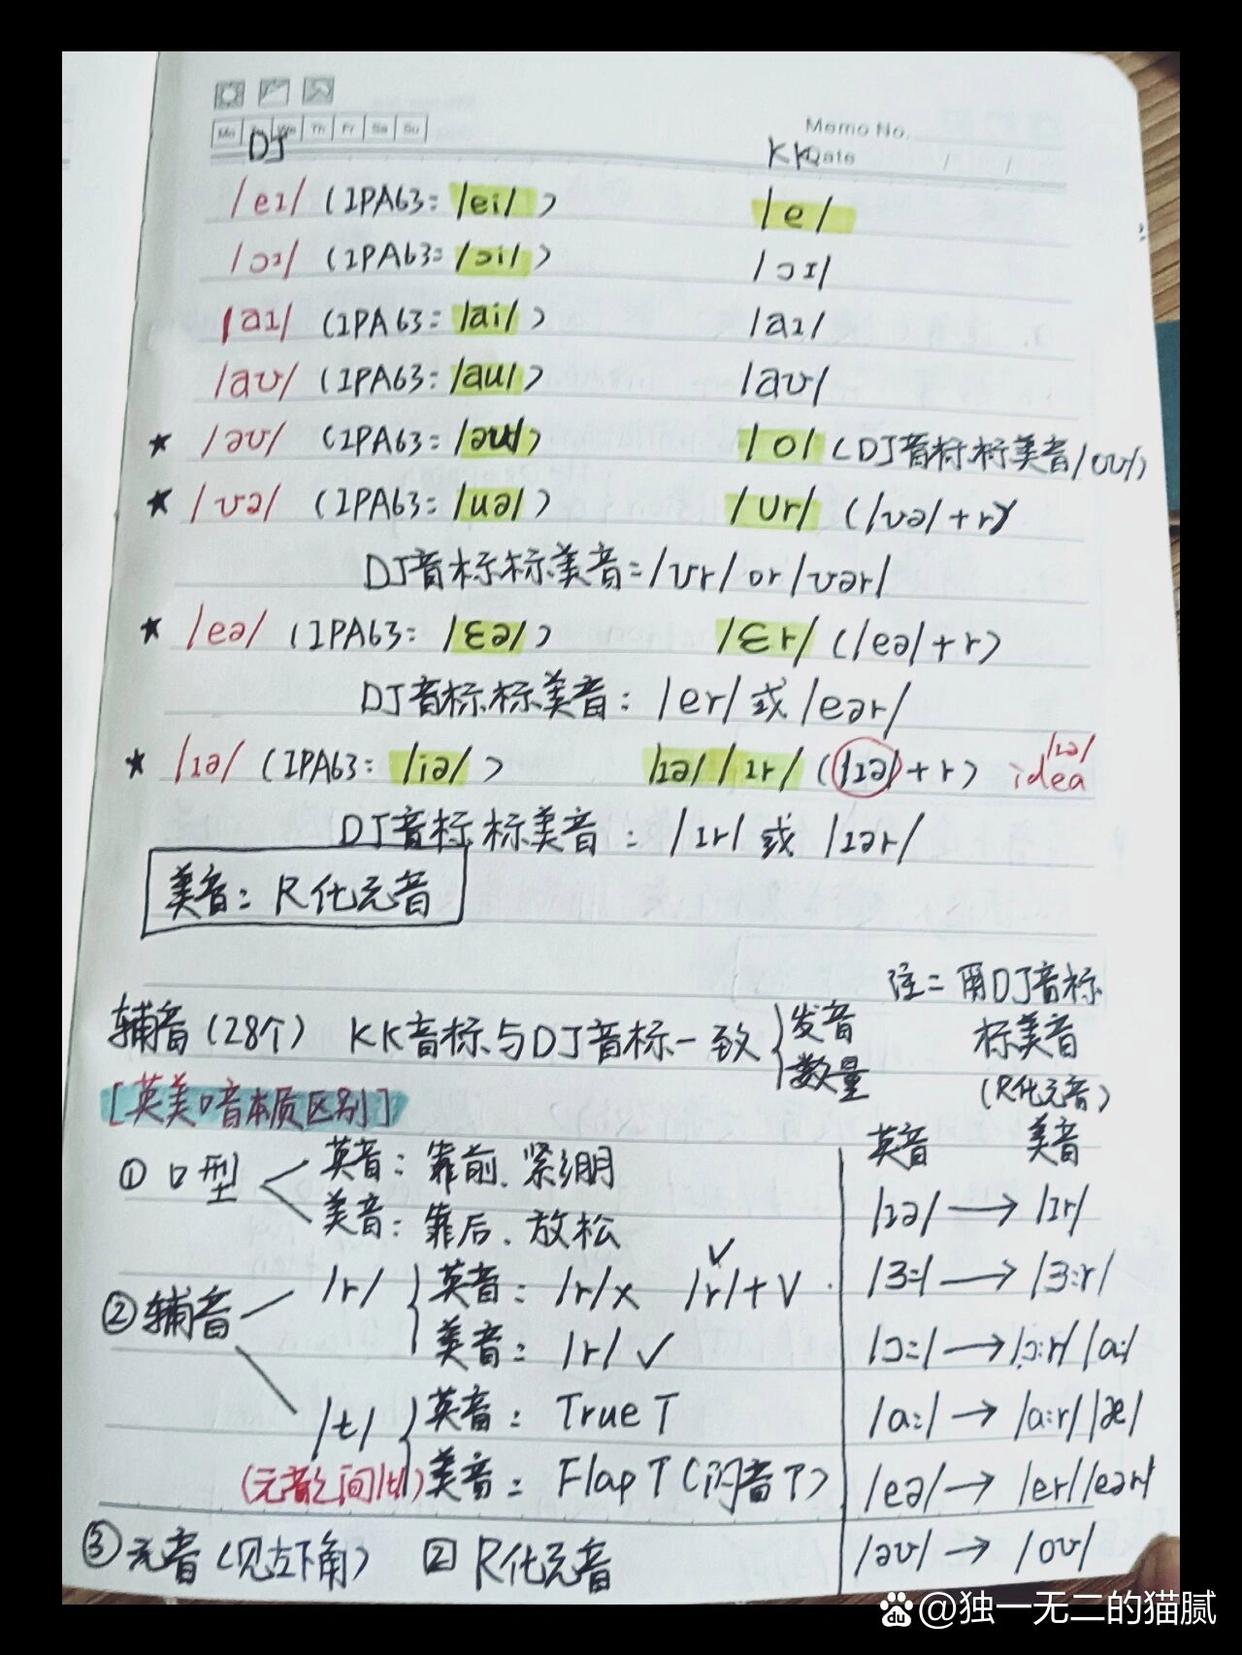 Mo We Th Fr Sa Su
Memo No.
Date / /
DJ KK
/eɪ/ (IPA63: /ei/) /e/
/ɔɪ/ (IPA63: /ɔi/) /ɔɪ/
/aɪ/ (IPA63: /ai/) /aɪ/
/aʊ/ (IPA63: /au/) /aʊ/
★ /əʊ/ (IPA63: /əu/) /o/ (DJ音标标美音/oʊ/)
★ /ʊə/ (IPA63: /uə/) /ʊr/ (/ʊə/+r)
DJ音标标美音=/ʊr/ or /ʊər/
★ /eə/ (IPA63: /ɛə/) /ɛr/ (/eə/+r)
DJ音标标美音: /er/ 或 /eər/
★ /ɪə/ (IPA63: /iə/) /ɪə/ /ɪr/ (/ɪə/+r) idea /ɪə/
DJ音标标美音: /ɪr/ 或 /ɪər/
美音: R化元音
辅音(28个) KK音标与DJ音标一致 { 发音 数量
注=用DJ音标
标美音
(R化元音)
[英美口音本质区别]
① 口型 英音: 靠前、紧绷
美音: 靠后、放松
② 辅音 /r/ { 英音: /r/× /r/+V ✓
美音: /r/ ✓
/t/ { 英音: True T
(元音之间/t/) 美音: Flap T (闪音T)
③ 元音 (见左下角) ② R化元音
英音 美音
/ɪə/ → /ɪr/
/ɜ:/ → /ɜ:r/
/ɔ:/ → /ɔ:r/ /a:/
/a:/ → /a:r/ /æ/
/eə/ → /er/ /eər/
/əʊ/ → /oʊ/
du @独一无二的猫腻